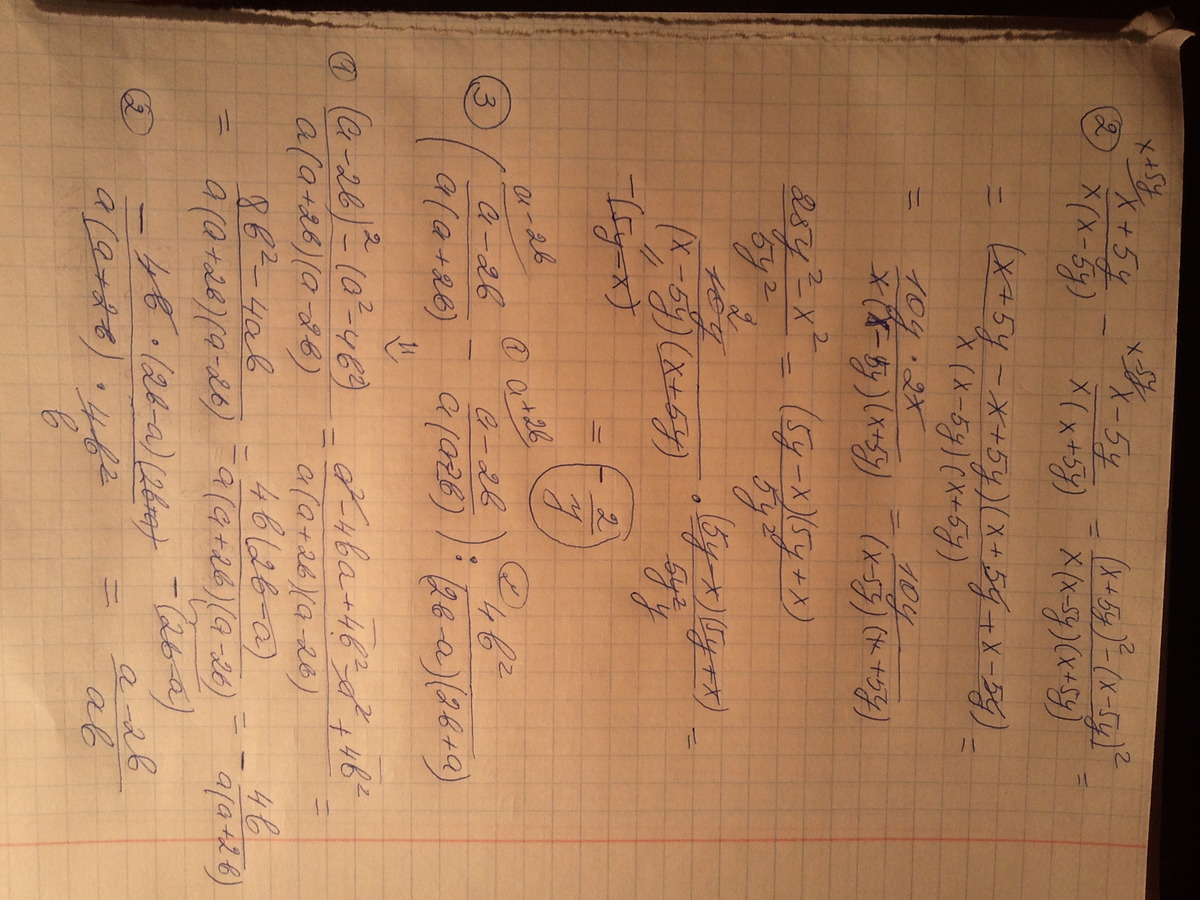 ② (x+5y)/(x(x-5y)) - (x-5y)/(x(x+5y)) = ((x+5y)²-(x-5y)²)/(x(x-5y)(x+5y)) =
= (x+5y-x+5y)(x+5y+x-5y)/(x(x-5y)(x+5y)) =
= (10y·2x)/(x(x-5y)(x+5y)) = 10y/((x-5y)(x+5y))
(25y²-x²)/(5y²) = (5y-x)(5y+x)/(5y²)
(10y)/((x-5y)(x+5y)) · (5y-x)(5y+x)/(5y²) =
-(5y-x)
= -2/y
③ ((a-2b)/(a(a+2b)) - (a-2b)/(a(a2b))) : 4b²/((2b-a)(2b+a))
① ((a-2b)²-(a²-4b²))/(a(a+2b)(a-2b)) = (a²-4ba+4b²-a²+4b²)/(a(a+2b)(a-2b)) =
= (8b²-4ab)/(a(a+2b)(a-2b)) = 4b(2b-a)/(a(a+2b)(a-2b)) = -4b/(a(a+2b))
-(2b-a)
② (-4b·(2b-a)(2b+a))/(a(a+2b)·4b²) = (a-2b)/(ab)